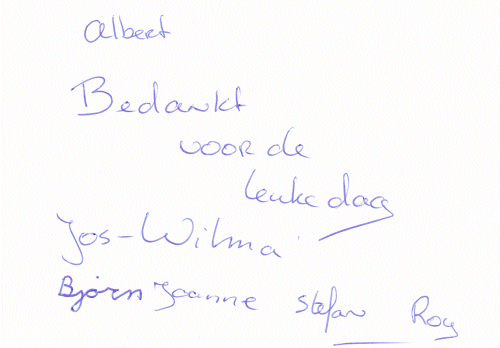 Albert
Bedankt
voor de
leuke dag
Jos - Wilma
Bjørn Jeanne Stefan Roy